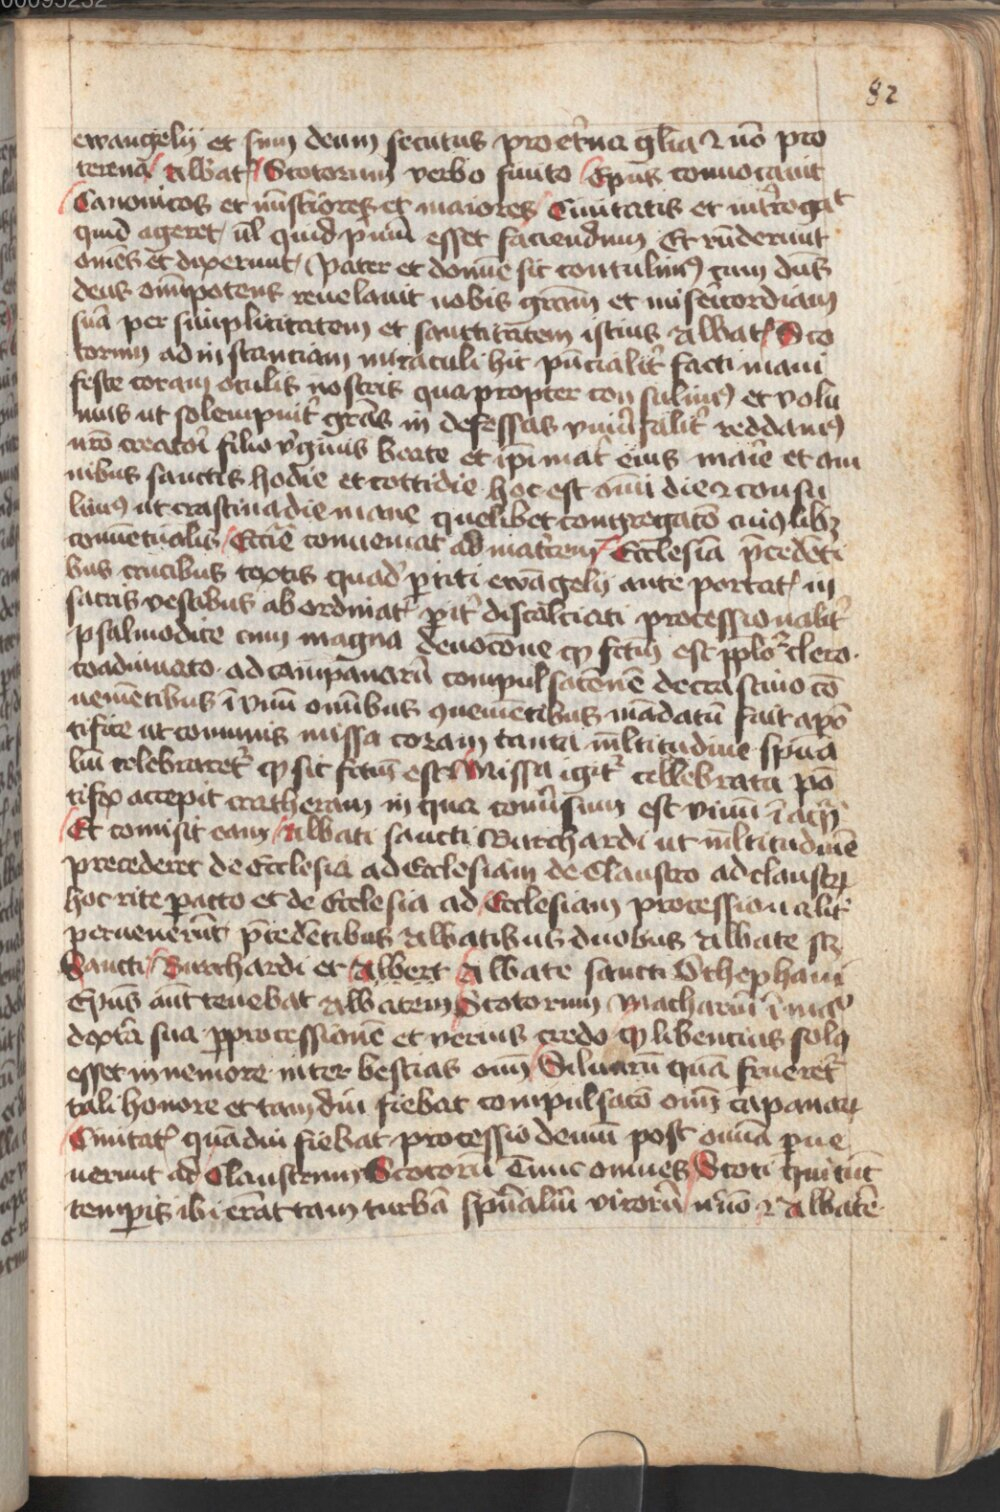 82
ewangelij et sum deum secutus pro etna glia et nō pro
terena Abbat Scotorum verbo finito Epus conuocauit
Canonicos et mistiores et maiores Ciuitatis et introgat
quid ageret ul quid pmū esset faciendum Et rnderunt
omēs et dixerunt pater et domine sic contulimus cum dns
deus omipotens reuelauit nobis gram et misericordiam
suā per simplicitatem et sanctitatem istius Abbat Sco
torum ad instantiam miraculi hic pncialit facti mani
feste coram oculis nostris quapropter consulimus et volu
mus ut solempnit gras in defessas vniusalit reddamus
nro creatori filio vginis beate et ipi mat eius marie et om
nibus sanctis hodie et cottidie hoc est omi die et consu
limus ut crastina die mane quelibet congregatō cuiuslibz
conuētualis Eccie conueniat ad matrem Ecclesiā pcedēti
bus crucibus textis quad ptiti ewāgelij ante portat in
sacris vestibus ab ordinat pit discalciati processionalit
psalmodice cum magna deuocōne qd fctm est pplo clero
coadiunato ad campanarū compulsacionē de crastino cō
uenientibus ī vnū omibus quenientibus mādatū fuit a pō
tifice ut communis missa coram tanta mltitudine spūa
liū celebraret qd sic fctm est Missa igit cellebrata pō
tifex accepit cratheram in qua conusum est vinū ī aquā
Et comisit eam Abbati sancti Burchardi ut mltitudinē
precederet de Ecclesia ad Ecclesiam de Claustro ad claustrū
hoc rite pacto et de Ecclesia ad Ecclesiam processionalit
peruenerūt pcedētibus Abbatibus duobus Abbate scz
Sancti Burchardi et Albert Abbate sancti Sthephani
Epus aut tenebat Abbatem Scotorum Machariū ī manu
dextra sua p processionē et verius credo qd libencius solus
esset in nemore inter bestias omū Siluarū quā frueret
tali honore et tam diu fiebat compulsacō omū cāpanarū
Ciuitat quādiu fiebat processio demū post omnia pue
nerunt ad Claustrum Scotorū Tunc omnes Scoti qui tūc
temporis ibi erāt tam turbā spūaliū virorū et Abbatē